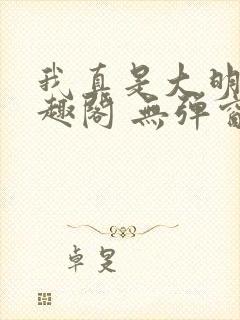 我真是大明
趣阁 無弹窗
卓旻